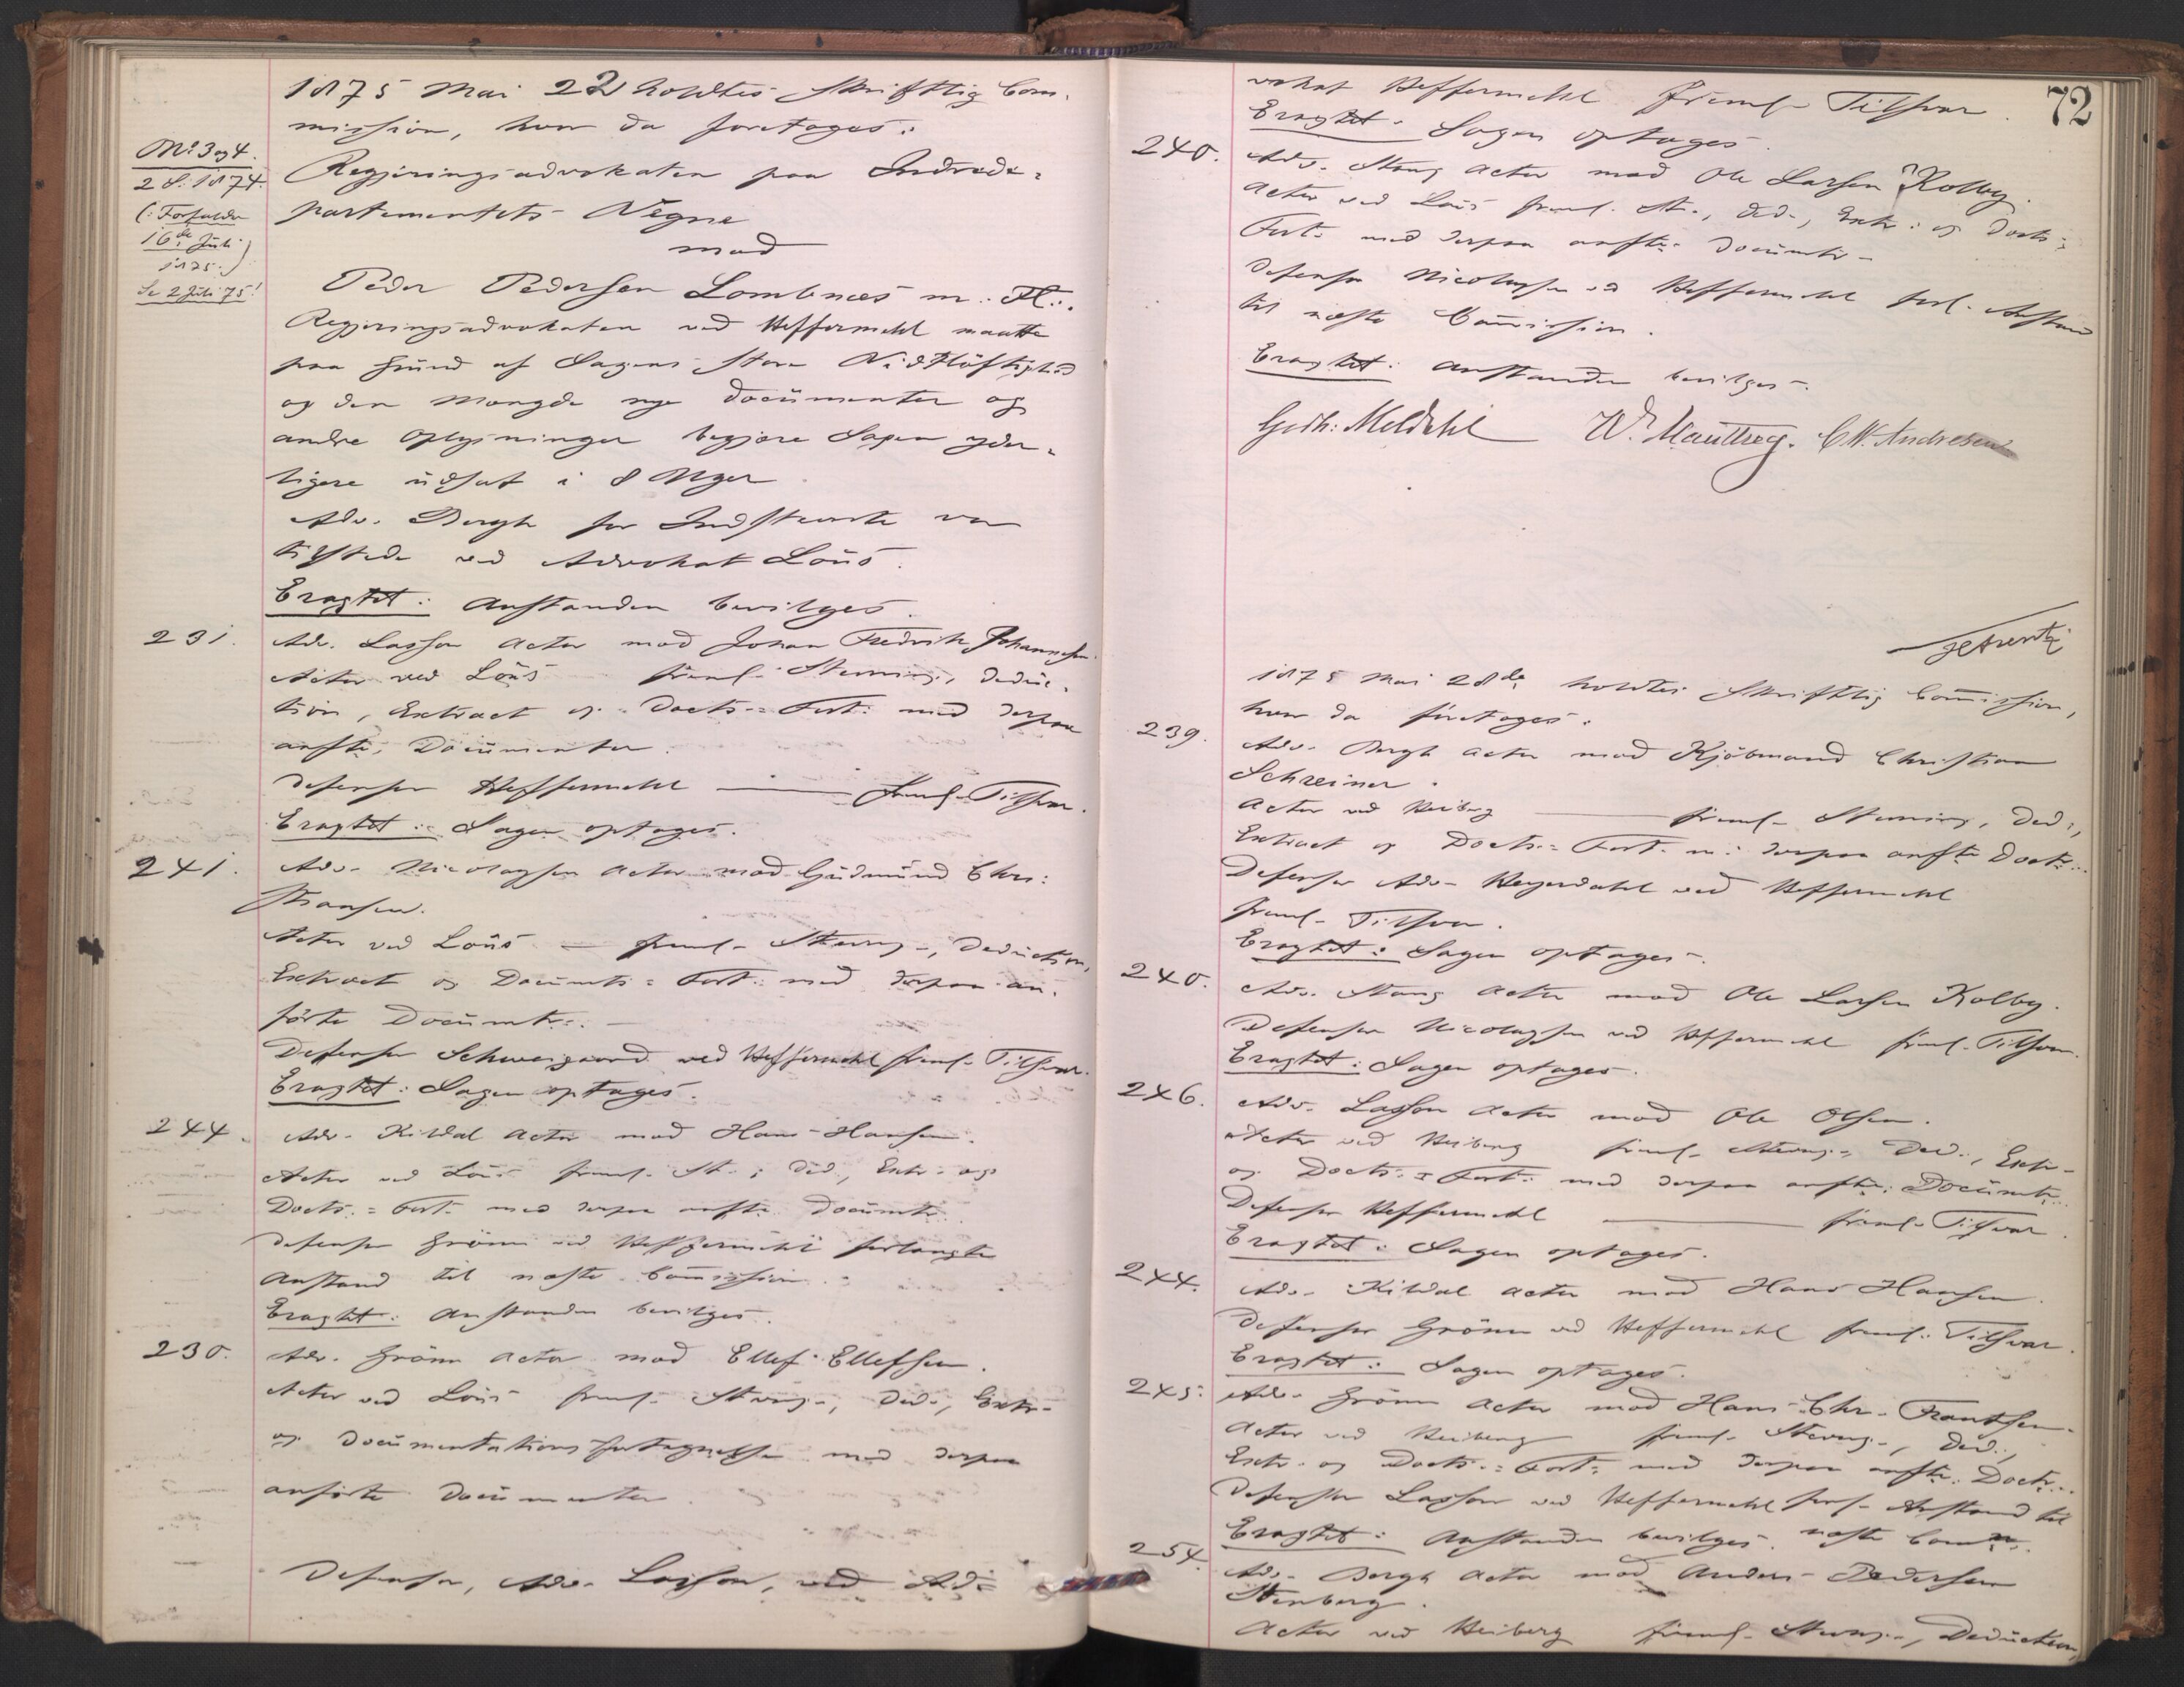 1875 Mai 22 holdtes Skriftlig Com-
mission, hvor da foretoges:
No 3 og 4.
2 S. 1874.
(: Forfalder
16de Juli
1875.)
Se 2 Juli 75!
Regjeringsadvokaten paa Indrede-
partementets Vegne
mod
Peder Pedersen Lombnæs m. Fl.
Regjeringsadvokaten ved Heffermehl maatte
paa Grund af Sagens store Vidtløftighed
og den Mængde nye Documenter og
andre Oplysninger begjære Sagen yder-
ligere udsat i 8 Uger
Adv. Bergh for Indstevnte var
tilstede ved Advokat Lous.
Eragtet: Anstanden bevilges.
231. Adv. Lasson Actor mod Johan Fredrik Johannesen.
Actor ved Lous freml. Stevning, Deduc-
tion, Extract og Docts.= Fort. med derpaa
anfte. Documenter.
Defensor Heffermehl freml. Tilsvar.
Eragtet: Sagen optages.
241. Adv. Nicolaysen Actor mod Gudmund Chri-
stiansen.
Actor ved Lous freml. Stevng., Deduction,
Extract og Documts.= Fort. med derpaa an-
førte Documtr.
Defensor Schweigaard ved Heffermehl freml. Tilsvar.
Eragtet: Sagen optages.
244. Adv. Kildal Actor mod Hans Hansen.
Actor ved Lous freml. St., Ded., Extr. og
Docts.= Fort. med derpaa anfte. Documtr.
Defensor Grönn ved Heffermehl forlangte
Anstand til næste Commission.
Eragtet: Anstanden bevilges.
230. Adv. Grönn Actor mod Ellef Ellefsen.
Actor ved Lous freml. Stevng., Ded., Extr.
og Documentationsfortegnelse med derpaa
anførte Documenter.
Defensor, Adv. Lasson, ved Ad-
72
vokat Heffermehl freml. Tilsvar.
Eragtet: Sagen optages.
240. Adv. Stang Actor mod Ole Larsen Kolby.
Actor ved Lous freml. St., Ded., Extr. og Docts.=
Fort. med derpaa anfte. Documtr.
Defensor Nicolaysen ved Heffermehl forl. Anstand
til næste Commission.
Eragtet: Anstanden bevilges.
Godh: Meldahl C.N. Andresen
1875 Mai 28de holdtes Skriftlig Commission,
hvor da foretoges:
239. Adv. Bergh Actor mod Kjöbmand Christian
Schreiner.
Actor ved Heiberg freml. Stevning, Ded.,
Extract og Docts.= Fort. m. derpaa anfte. Doctr.
Defensor Adv. Heyerdahl ved Heffermehl
freml. Tilsvar.
Eragtet: Sagen optages.
240. Adv. Stang Actor mod Ole Larsen Kolby.
Defensor Nicolaysen ved Heffermehl freml. Tilsvar.
Eragtet: Sagen optages.
246. Adv. Lasson Actor mod Ole Olsen.
Actor ved Heiberg freml. Stevng., Ded., Extr.
og Docts.= Fort. med derpaa anfte. Documtr.
Defensor Heffermehl freml. Tilsvar.
Eragtet: Sagen optages.
244. Adv. Kildal Actor mod Hans Hansen.
Defensor Grönn ved Heffermehl freml. Tilsvar.
Eragtet: Sagen optages.
245. Adv. Grönn Actor mod Hans Chr. Frantsen.
Actor ved Heiberg freml. Stevng., Ded.,
Extr. og Docts.= Fort. med derpaa anfte. Doctr.
Defensor Lasson ved Heffermehl forl. Anstand til
Eragtet: Anstanden bevilges. næste Comn.
254. Adv. Bergh Actor mod Anders Pedersen
Stenberg.
Actor ved Heiberg freml. Stevng., Deduction,